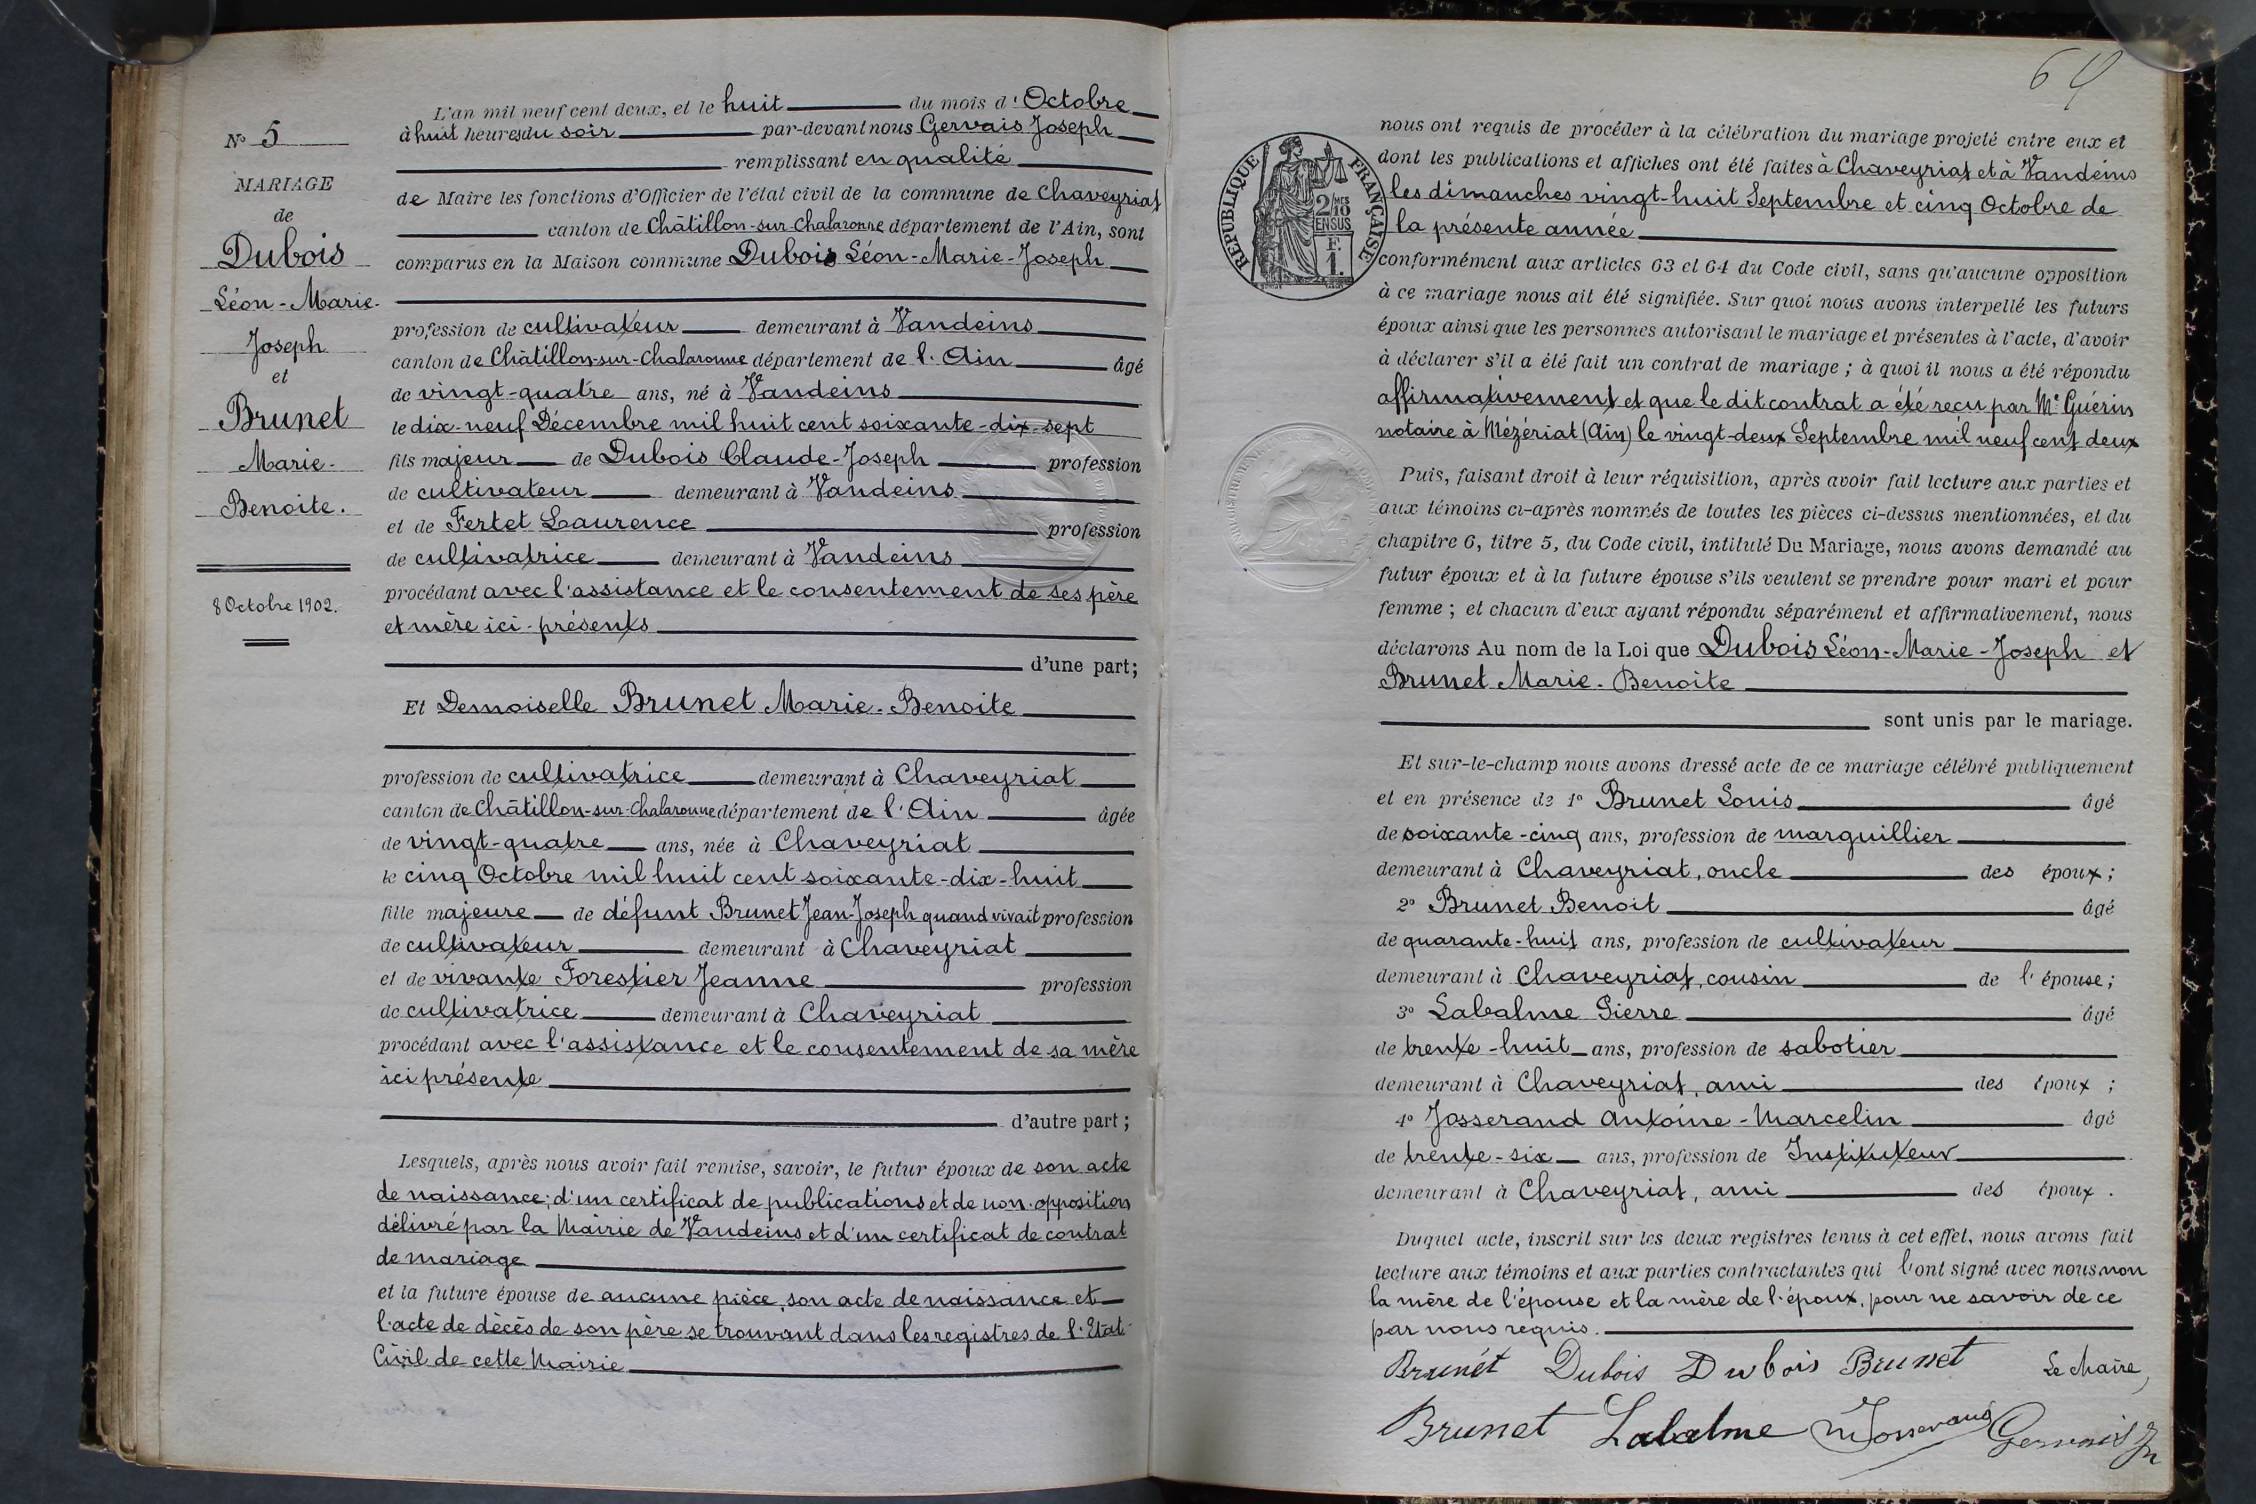 N° 5
MARIAGE
de
Dubois
Léon-Marie-
Joseph
et
Brunet
Marie-
Benoite.
8 Octobre 1902.
L'an mil neuf cent deux, et le huit du mois d'Octobre
à huit heures du soir par-devant nous Gervais Joseph
remplissant en qualité
de Maire les fonctions d'Officier de l'état civil de la commune de Chaveyriat
canton de Châtillon-sur-Chalaronne département de l'Ain, sont
comparus en la Maison commune Dubois Léon-Marie-Joseph
profession de cultivateur demeurant à Vandeins
canton de Châtillon-sur-Chalaronne département de l'Ain âgé
de vingt-quatre ans, né à Vandeins
le dix-neuf Décembre mil huit cent soixante-dix-sept
fils majeur de Dubois Claude-Joseph profession
de cultivateur demeurant à Vandeins
et de Fertet Laurence profession
de cultivatrice demeurant à Vandeins
procédant avec l'assistance et le consentement de ses père
et mère ici présents
d'une part;
Et Demoiselle Brunet Marie-Benoite
profession de cultivatrice demeurant à Chaveyriat
canton de Châtillon-sur-Chalaronne département de l'Ain âgée
de vingt-quatre ans, née à Chaveyriat
le cinq Octobre mil huit cent soixante-dix-huit
fille majeure de défunt Brunet Jean-Joseph quand vivait profession
de cultivateur demeurant à Chaveyriat
et de vivante Forestier Jeanne profession
de cultivatrice demeurant à Chaveyriat
procédant avec l'assistance et le consentement de sa mère
ici présente
d'autre part;
Lesquels, après nous avoir fait remise, savoir, le futur époux de son acte
de naissance; d'un certificat de publications et de non-opposition
délivré par la Mairie de Vandeins et d'un certificat de contrat
de mariage
et la future épouse de aucune pièce, son acte de naissance et
l'acte de décès de son père se trouvant dans les registres de l'Etat-
Civil de cette Mairie
64
RÉPUBLIQUE FRANÇAISE
2/10MES
EN SUS
F.
1.
nous ont requis de procéder à la célébration du mariage projeté entre eux et
dont les publications et affiches ont été faites à Chaveyriat et à Vandeins
les dimanches vingt-huit Septembre et cinq Octobre de
la présente année
conformément aux articles 63 et 64 du Code civil, sans qu'aucune opposition
à ce mariage nous ait été signifiée. Sur quoi nous avons interpellé les futurs
époux ainsi que les personnes autorisant le mariage et présentes à l'acte, d'avoir
à déclarer s'il a été fait un contrat de mariage; à quoi il nous a été répondu
affirmativement et que le dit contrat a été reçu par Me Guérin
notaire à Mézériat (Ain) le vingt-deux Septembre mil neuf cent deux
Puis, faisant droit à leur réquisition, après avoir fait lecture aux parties et
aux témoins ci-après nommés de toutes les pièces ci-dessus mentionnées, et du
chapitre 6, titre 5, du Code civil, intitulé Du Mariage, nous avons demandé au
futur époux et à la future épouse s'ils veulent se prendre pour mari et pour
femme; et chacun d'eux ayant répondu séparément et affirmativement, nous
déclarons Au nom de la Loi que Dubois Léon-Marie-Joseph et
Brunet Marie-Benoite
sont unis par le mariage.
Et sur-le-champ nous avons dressé acte de ce mariage célébré publiquement
et en présence de 1° Brunet Louis âgé
de soixante-cinq ans, profession de marguillier
demeurant à Chaveyriat, oncle des époux;
2° Brunet Benoit âgé
de quarante-huit ans, profession de cultivateur
demeurant à Chaveyriat, cousin de l'épouse;
3° Labalme Pierre âgé
de trente-huit ans, profession de sabotier
demeurant à Chaveyriat, ami des époux;
4° Josserand Antoine-Marcelin âgé
de trente-six ans, profession de Instituteur
demeurant à Chaveyriat, ami des époux.
Duquel acte, inscrit sur les deux registres tenus à cet effet, nous avons fait
lecture aux témoins et aux parties contractantes qui l'ont signé avec nous non
la mère de l'épouse et la mère de l'époux, pour ne savoir de ce
par nous requis.
Brunét Dubois Dubois Brunet Le Maire,
Brunet Labalme Josserand Gervais Jh